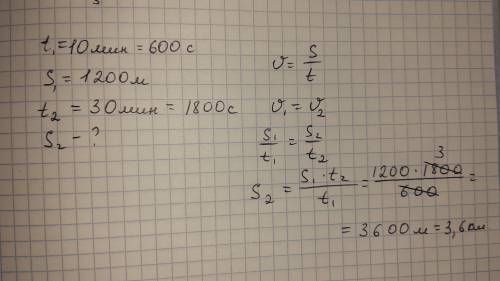 t₁=10мин=600с
S₁=1200м
t₂=30мин=1800с
S₂-?
v=S/t
v₁=v₂
S₁/t₁=S₂/t₂
S₂=S₁·t₂/t₁=1200·1800/600=
3
=3600м=3,6км